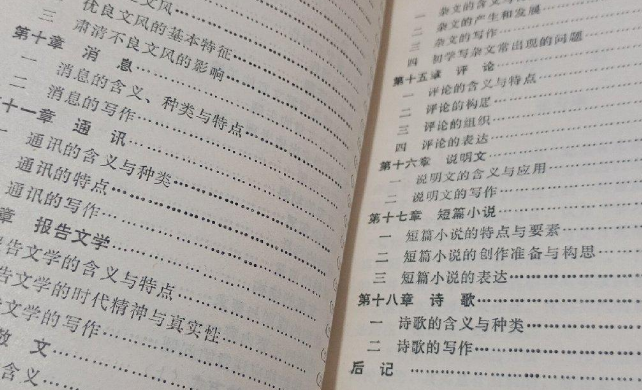 文风
二 优良文风的基本特征
三 肃清不良文风的影响
第十章 消息
一 消息的含义、种类与特点
二 消息的写作
十一章 通讯
一 通讯的含义与种类
通讯的特点
通讯的写作
章 报告文学
报告文学的含义与特点
告文学的时代精神与真实性
文学的写作
散文
含义
一 杂文的含义与
二 杂文的产生和发展
三 杂文的写作
四 初学写杂文常出现的问题
第十五章 评论
一 评论的含义与特点
二 评论的构思
三 评论的组织
四 评论的表达
第十六章 说明文
一 说明文的含义与应用
二 说明文的写作
第十七章 短篇小说
一 短篇小说的特点与要素
二 短篇小说的创作准备与构思
三 短篇小说的表达
第十八章 诗歌
一 诗歌的含义与种类
二 诗歌的写作
后记